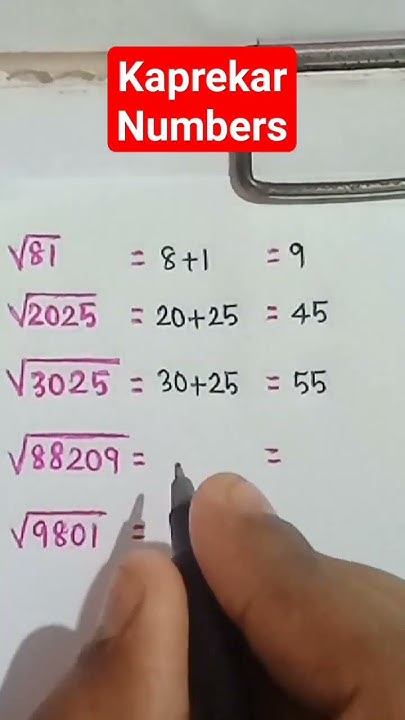 Kaprekar
Numbers
√81 = 8+1 = 9
√2025 = 20+25 = 45
√3025 = 30+25 = 55
√88209 = =
√9801 =